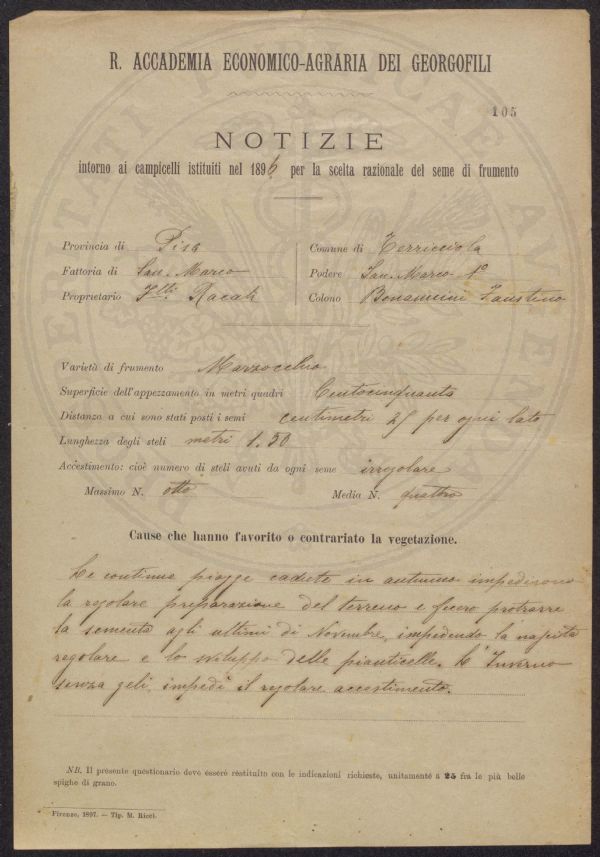 R. ACCADEMIA ECONOMICO-AGRARIA DEI GEORGOFILI
105
NOTIZIE
intorno ai campicelli istituiti nel 1896 per la scelta razionale del seme di frumento
Provincia di Pisa
Fattoria di San Marco
Proprietario F.lli
Comune di Terricciola
Podere San Marco 1º
Colono Faustino
Varietà di frumento Marzocchio
Superficie dell'appezzamento in metri quadri Centocinquanta
Distanza a cui sono stati posti i semi centimetri 25 per ogni lato
Lunghezza degli steli metri 1.30
Accestimento: cioè numero di steli avuti da ogni seme irregolare
Massimo N. otto Media N. quattro
Cause che hanno favorito o contrariato la vegetazione.
Le continue piogge cadute in autunno impedirono
la regolare preparazione del terreno e fecero protrarre
la sementa agli ultimi di Novembre, impedendo la nascita
regolare e lo sviluppo delle pianticelle. L'Inverno
senza geli, impedì il regolare accestimento.
NB. Il presente questionario deve essere restituito con le indicazioni richieste, unitamente a 25 fra le più belle
spighe di grano.
Firenze, 1897. — Tip. M. Ricci.